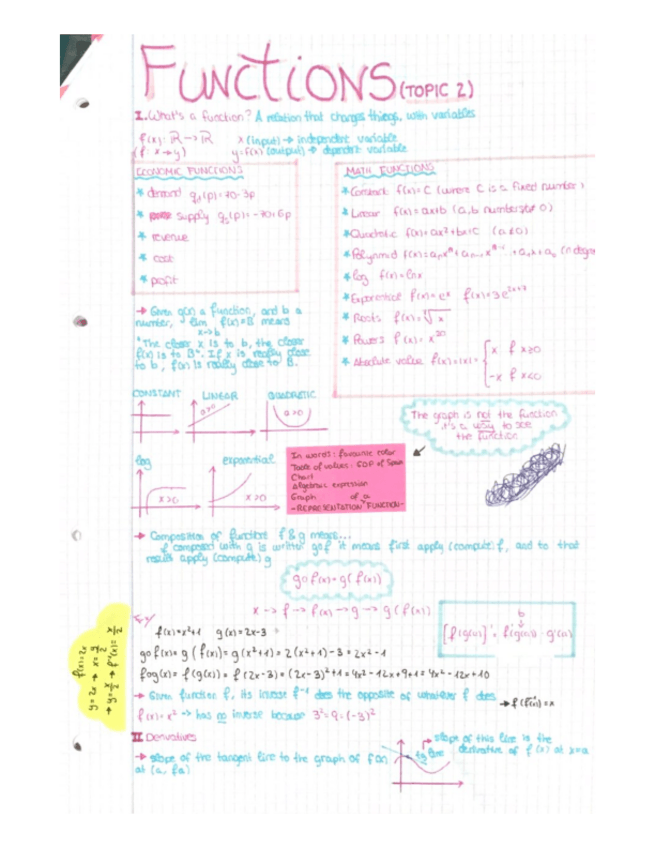 FUNCTIONS (TOPIC 2)
I. What's a function? A relation that changes things, with variables
f(x): R → R x (input) → independent variable
(f: x → y) y=f(x) (output) → dependent variable
ECONOMIC FUNCTIONS
* demand q₁(p)=70-3p
* supply qₛ(p)=-70+6p
* revenue
* cost
* profit
MATH FUNCTIONS
* Constant f(x)=C (where C is a fixed number)
* Linear f(x)=ax+b (a,b numbers ≠ 0)
* Quadratic f(x)=ax²+bx+C (a≠0)
* Polynomial f(x)=aₙxⁿ+aₙ₋₁xⁿ⁻¹ +a₁x+a₀ (n degre
* log f(x)=lnx
* Exponential f(x)=eˣ f(x)=3e²ˣ⁺⁷
* Roots f(x)=√x
* Powers f(x)=x²⁰
* Absolute value f(x)=|x|= { x if x≥0
-x if x<0
→ Given g(x) a function, and b a
number, lim f(x)=B means
x→b
"The closer x is to b, the closer
f(x) is to B". If x is really close
to b, f(x) is really close to B.
CONSTANT LINEAR QUADRATIC
a>0 a>0
log exponential
x>0 x>0
The graph is not the function
it's a way to see
the function
In words: favourite color
Table of values: GDP of Spain
Chart
Algebraic expression
Graph of a
-REPRESENTATION FUNCTION-
→ Composition of function f & g means...
f composed with g is written gof it means first apply (compute) f, and to that
results apply (compute) g
gof(x)=g(f(x))
x → f → f(x) → g → g(f(x))
b
[f(g(x))]'= f'(g(x))·g'(x)
f(x)=x²+1 g(x)=2x-3
gof(x)=g(f(x))=g(x²+1)=2(x²+1)-3=2x²-1
fog(x)=f(g(x))=f(2x-3)=(2x-3)²+1=4x²-12x+9+1=4x²-12x+10
f(x)=2x
y=2x → x=y/2
→ y=x/2 → f⁻¹(x)=x/2
→ Given function f, its inverse f⁻¹ does the opposite of whatever f does → f(f⁻¹(x))=x
f(x)=x² → has no inverse because 3²=9=(-3)²
II Derivatives
→ slope of the tangent line to the graph of f on
at (a, fa)
→ slope of this line is the
derivative of f(x) at x=a